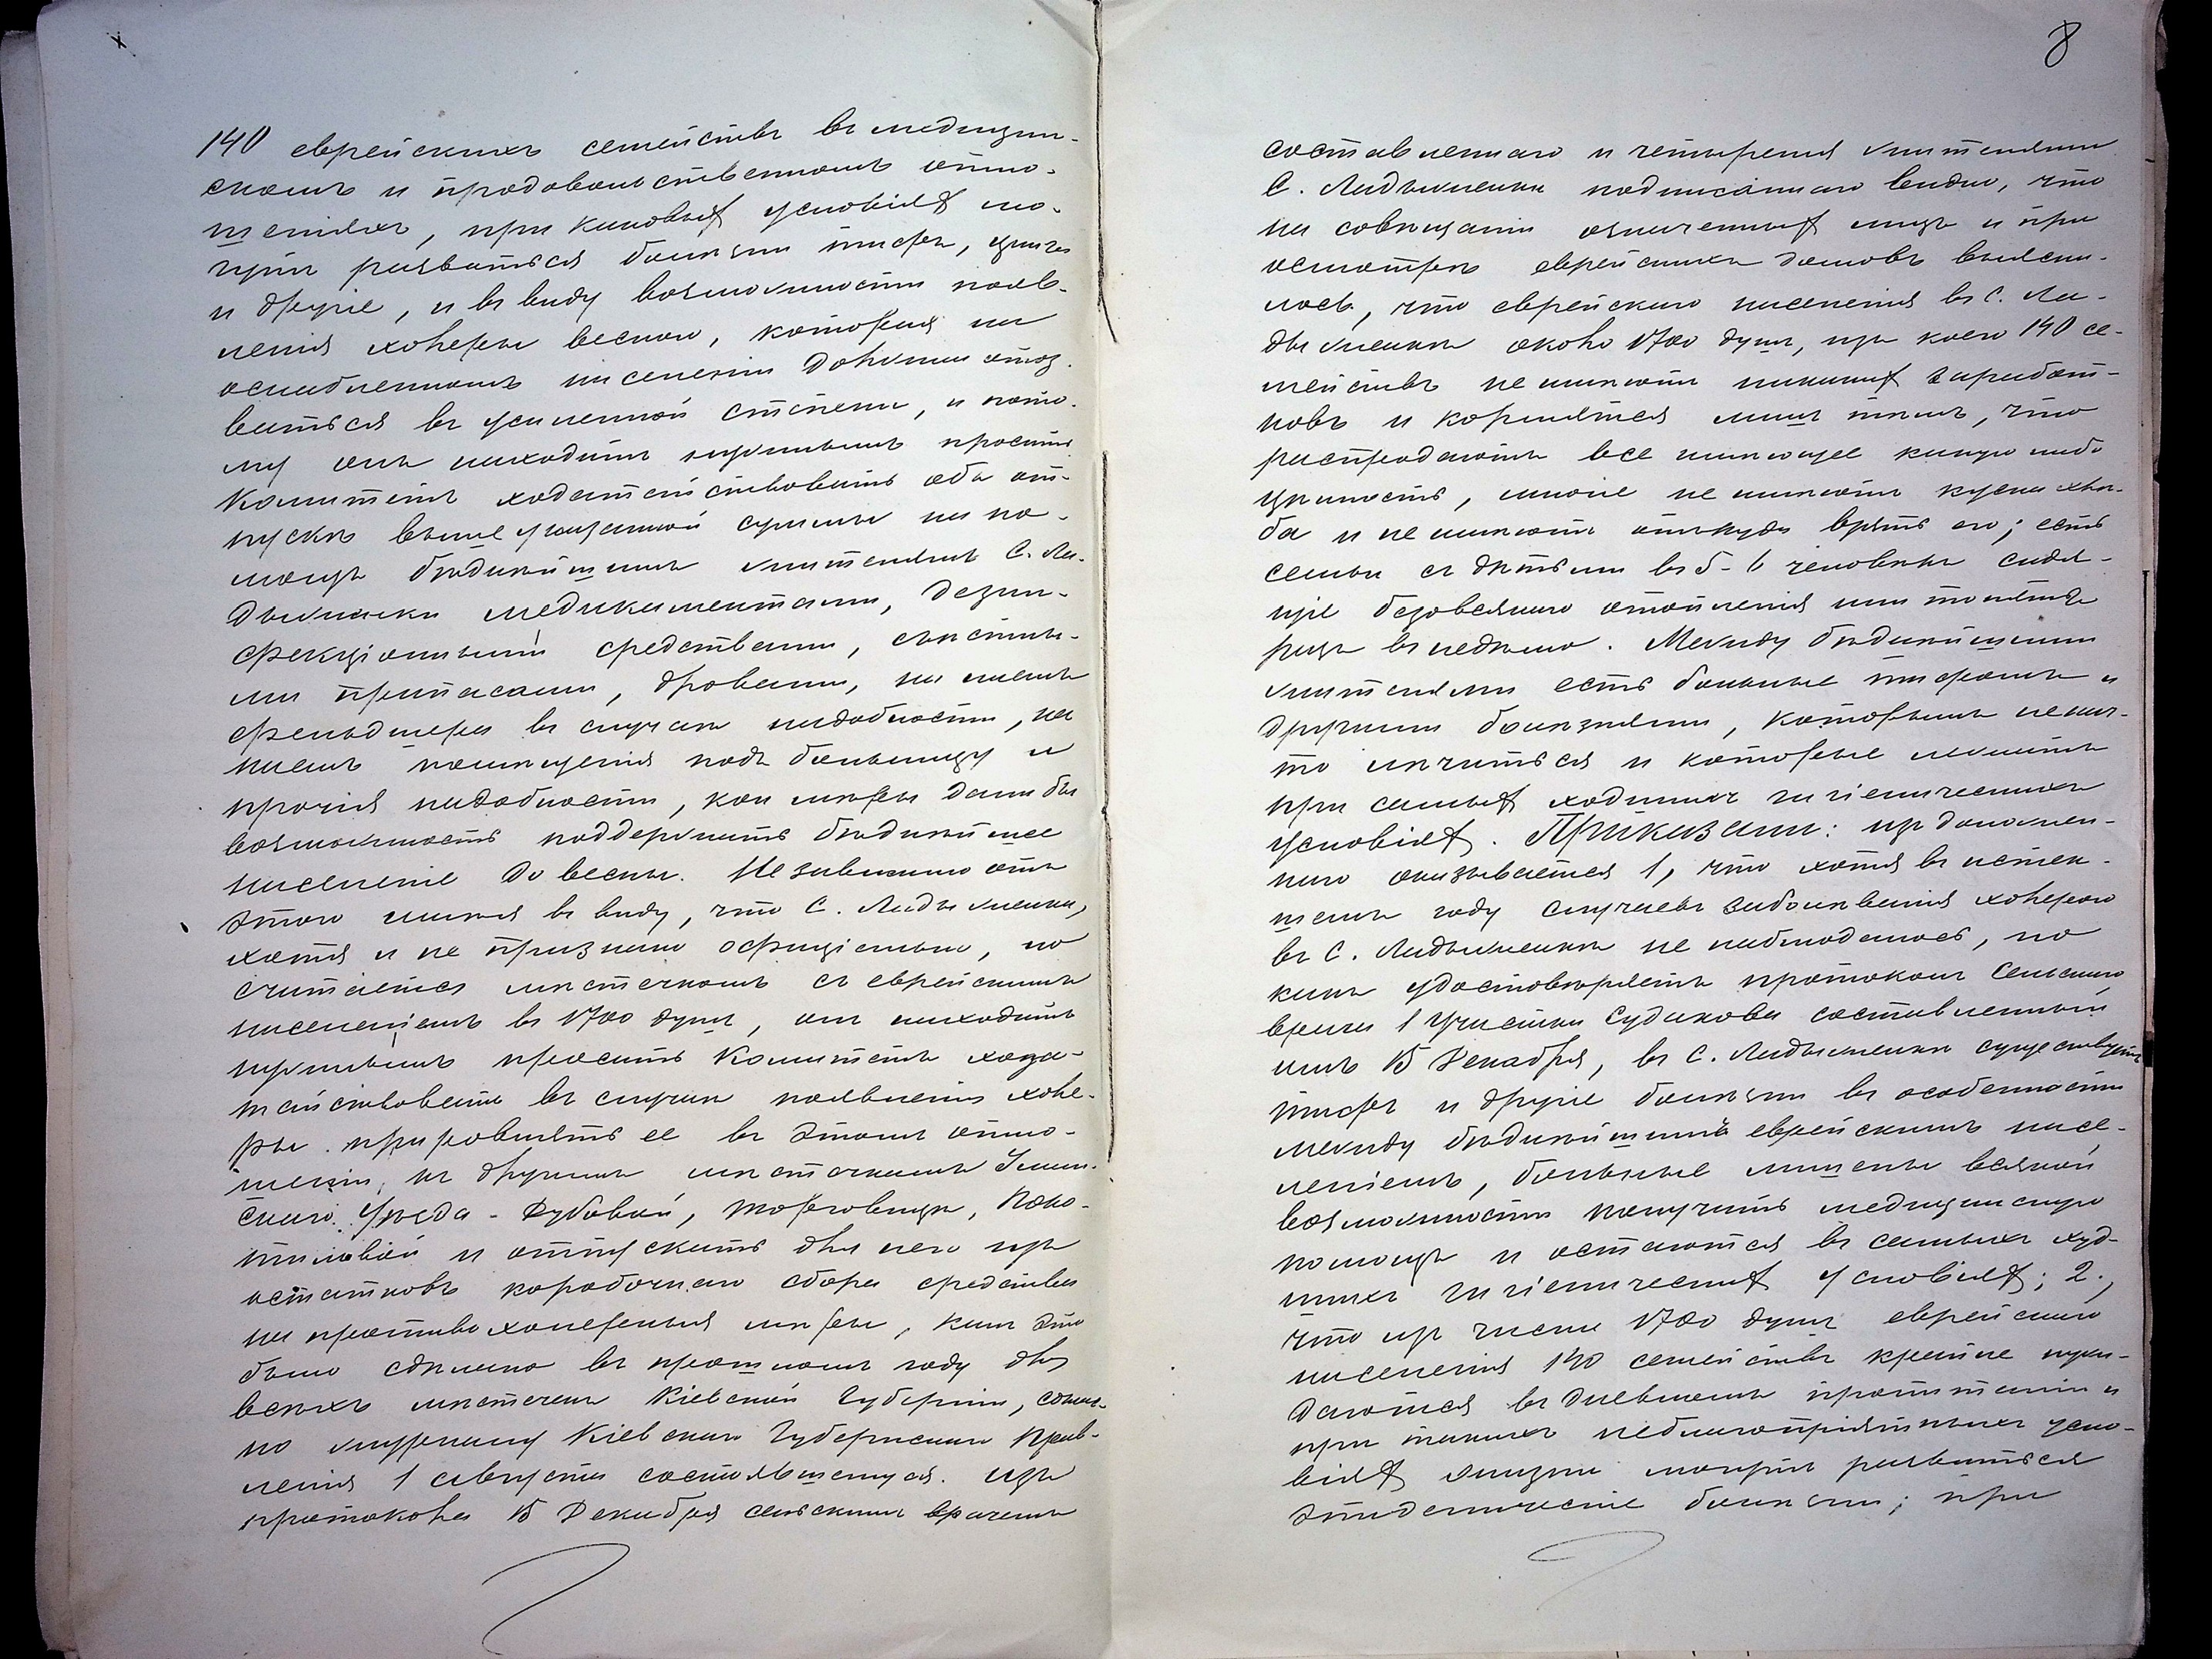 140 еврейскихъ семействъ въ медицин-
скомъ и продовольственномъ отно-
шеніяхъ, при каковыхъ условіяхъ мо-
гутъ развиться болѣзни тифъ, цынга
и другіе, и въ виду возможности появ-
ленія холеры весною, которая на
ослабленномъ населеніи должна отоз-
ваться въ усиленной степени, и пото-
му онъ находитъ нужнымъ просить
Комитетъ ходатайствовать объ от-
пускѣ вышеуказанной суммы на по-
мощь бѣднѣйшимъ жителямъ С. Ла-
дыжинки медикаментами, дезин-
фекціонными средствами, съѣстны-
ми припасами, дровами, на наемъ
фельдшера въ случаѣ надобности, на
наемъ помѣщенія подъ больницу и
прочія надобности, кои мѣры дали бы
возможность поддержать бѣднѣйшее
населеніе до весны. Независимо отъ
этого имѣя въ виду, что С. Ладыжинка,
хотя и не признано офиціально, но
считается мѣстечкомъ съ еврейскимъ
населеніемъ въ 1700 душъ, онъ находитъ
нужнымъ просить Комитетъ хода-
тайствовать въ случаѣ появленія холе-
ры приравнять ее въ этомъ отно-
шеніи къ другимъ мѣстечкамъ Уман-
скаго Уѣзда - Дубовой, Торговицѣ, Поко-
тиловой и отпускать для него изъ
остатковъ коробочнаго сбора средства
на противохолерныя мѣры, какъ это
было сдѣлано въ прошломъ году для
всѣхъ мѣстечекъ Кіевской Губерніи, соглас-
но журналу Кіевскаго Губернскаго Прав-
ленія 1 августа состоявшемуся. Изъ
протокола 15 Декабря сельскимъ врачемъ
8
составленнаго и четырмя жителями
С. Ладыжинки подписаннаго видно, что
на совѣщаніи означенныхъ лицъ и при
осмотрѣ еврейскихъ домовъ выясни-
лось, что еврейскаго населенія въ С. Ла-
дыжинкѣ около 1700 душъ, изъ коего 140 се-
мействъ не имѣютъ никакихъ заработ-
ковъ и кормятся лишь тѣмъ, что
распродаютъ все имѣющее какую либо
цѣнность, многіе не имѣютъ куска хлѣ-
ба и не имѣютъ откуда взять его; есть
семьи съ дѣтьми въ 5-6 человѣкъ сидя-
щіе безъ всякаго отопленія или топятъ
разъ въ недѣлю. Между бѣднѣйшими
жителями есть больные тифомъ и
другими болѣзнями, которымъ не на-
что лечиться и которые лежатъ
при самыхъ худшихъ гигіеническихъ
условіяхъ. Приказали: изъ доложен-
наго оказывается 1, что хотя въ истек-
шемъ году случаевъ заболѣванія холерою
въ С. Ладыжинкѣ не наблюдалось, но
какъ удостовѣряетъ протоколъ Сельскаго
врача 1 Участка Судакова составленный
имъ 15 Декабря, въ С. Ладыжинкѣ существуетъ
тифъ и другіе болѣзни въ особенности
между бѣднѣйшимъ еврейскимъ насе-
леніемъ, больные лишены всякой
возможности получить медицинскую
помощь и остаются въ самыхъ худ-
шихъ гигіеническихъ условіяхъ; 2.,
что изъ числа 1700 душъ еврейскаго
населенія 140 семействъ крайне нуж-
даются въ дневномъ пропитаніи и
при такихъ неблагопріятныхъ усло-
віяхъ жизни могутъ развиться
эпидемическіе болѣзни; при